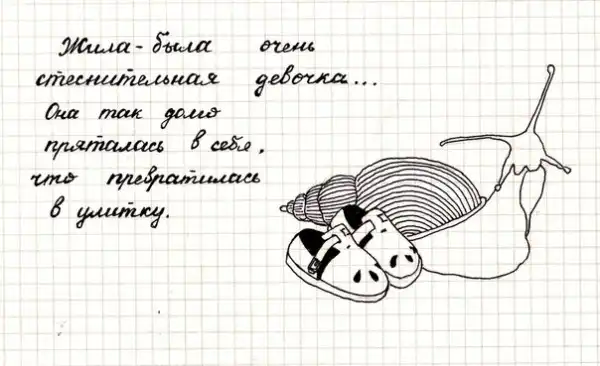 Жила-была очень
стеснительная девочка...
Она так долго
пряталась в себя,
что превратилась
в улитку.